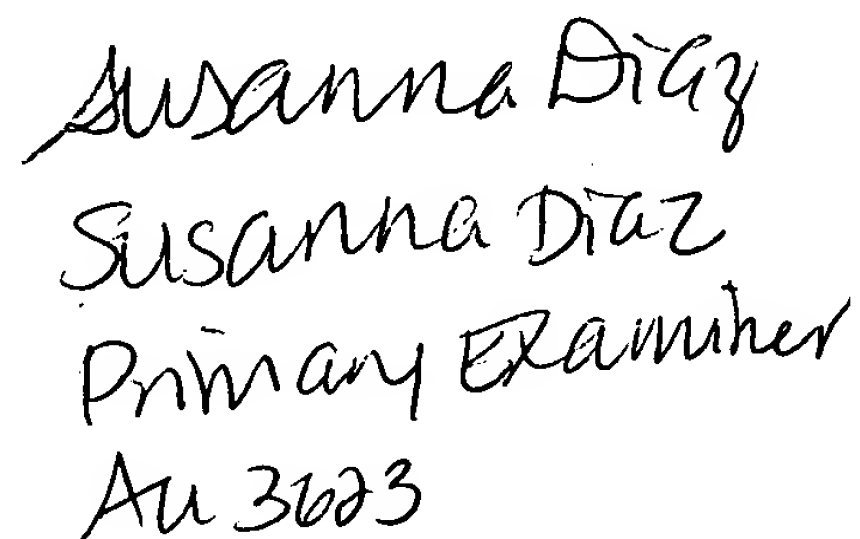 Susanna Diaz
Susanna Diaz
Primary Examiner
Au 3623